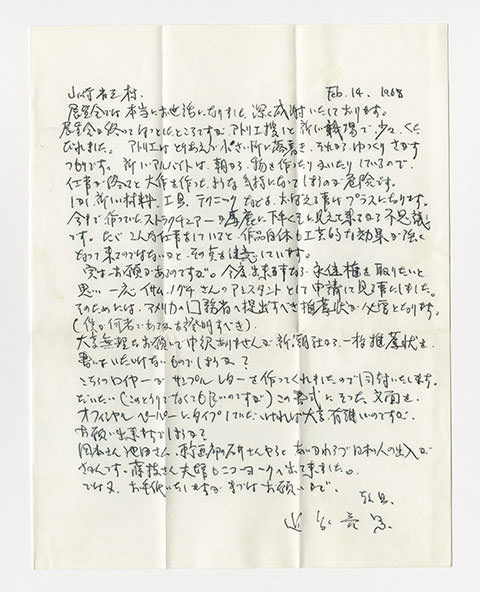 山崎省三様. Feb. 14. 1968
展覧会では本当にお世話になりました. 深く感謝いたしております。
展覧会が終ってほっとしたところですが アトリエ捜しと新しい職場で少々くた
びれました。アトリエはとりあえず小さい所に落着き、それからゆっくりさがす
つもりです。新しいアルバイトは、朝から物を作ったりみがいたりしているので
仕事が終ると大作を作った様な気持になってしまうので危険です。
しかし新しい材料、工具、テクニックなどをおぼえる事はプラスになります。
今まで作っていたストラクチュアーが馬鹿に下手くそに見えて来るから不思議
です。ただこんな仕事をしていると作品自体も工芸的な効果が強く
なって来るのではないかと、その点を注意しています。
実はお願いがあるのですが。今度出来る事なら永住権を取りたいと
思い一応イサム.ノグチさんのアシスタントとして申請して見る事にしました。
そのためには、アメリカの労務省へ提出すべき推薦状が必要となります。
(僕が何者であるかを證明すべき)
大変無理なお願いで申訳ありませんが新潮社から一枚推薦状を
書いていただけないものでしょうか?
こちらのロイヤーがサンプルレターを作ってくれましたので同封いたします。
だいたい(このとうりでなくても良いのですが)この書式にそった文面を
オフィシャルペーパーにタイプしていただければ大変有難いのですが
お願い出来ますでしょうか?
岡本さん池田さん、石井さんやらとあいかわらず日本人の出入が
さかんです。篠原さん夫婦もニューヨークへ出て来ました。
では又、お手紙いたしますがまずはお願いまで。
敬具
近藤竜男